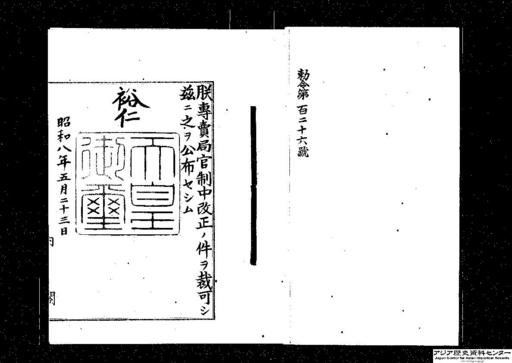 勅令第百二十六號
朕專賣局官制中改正ノ件ヲ裁可シ
茲ニ之ヲ公布セシム
裕仁
天皇御璽
昭和八年五月二十三日
内閣
アジア歴史資料センター
Japan Center for Asian Historical Records